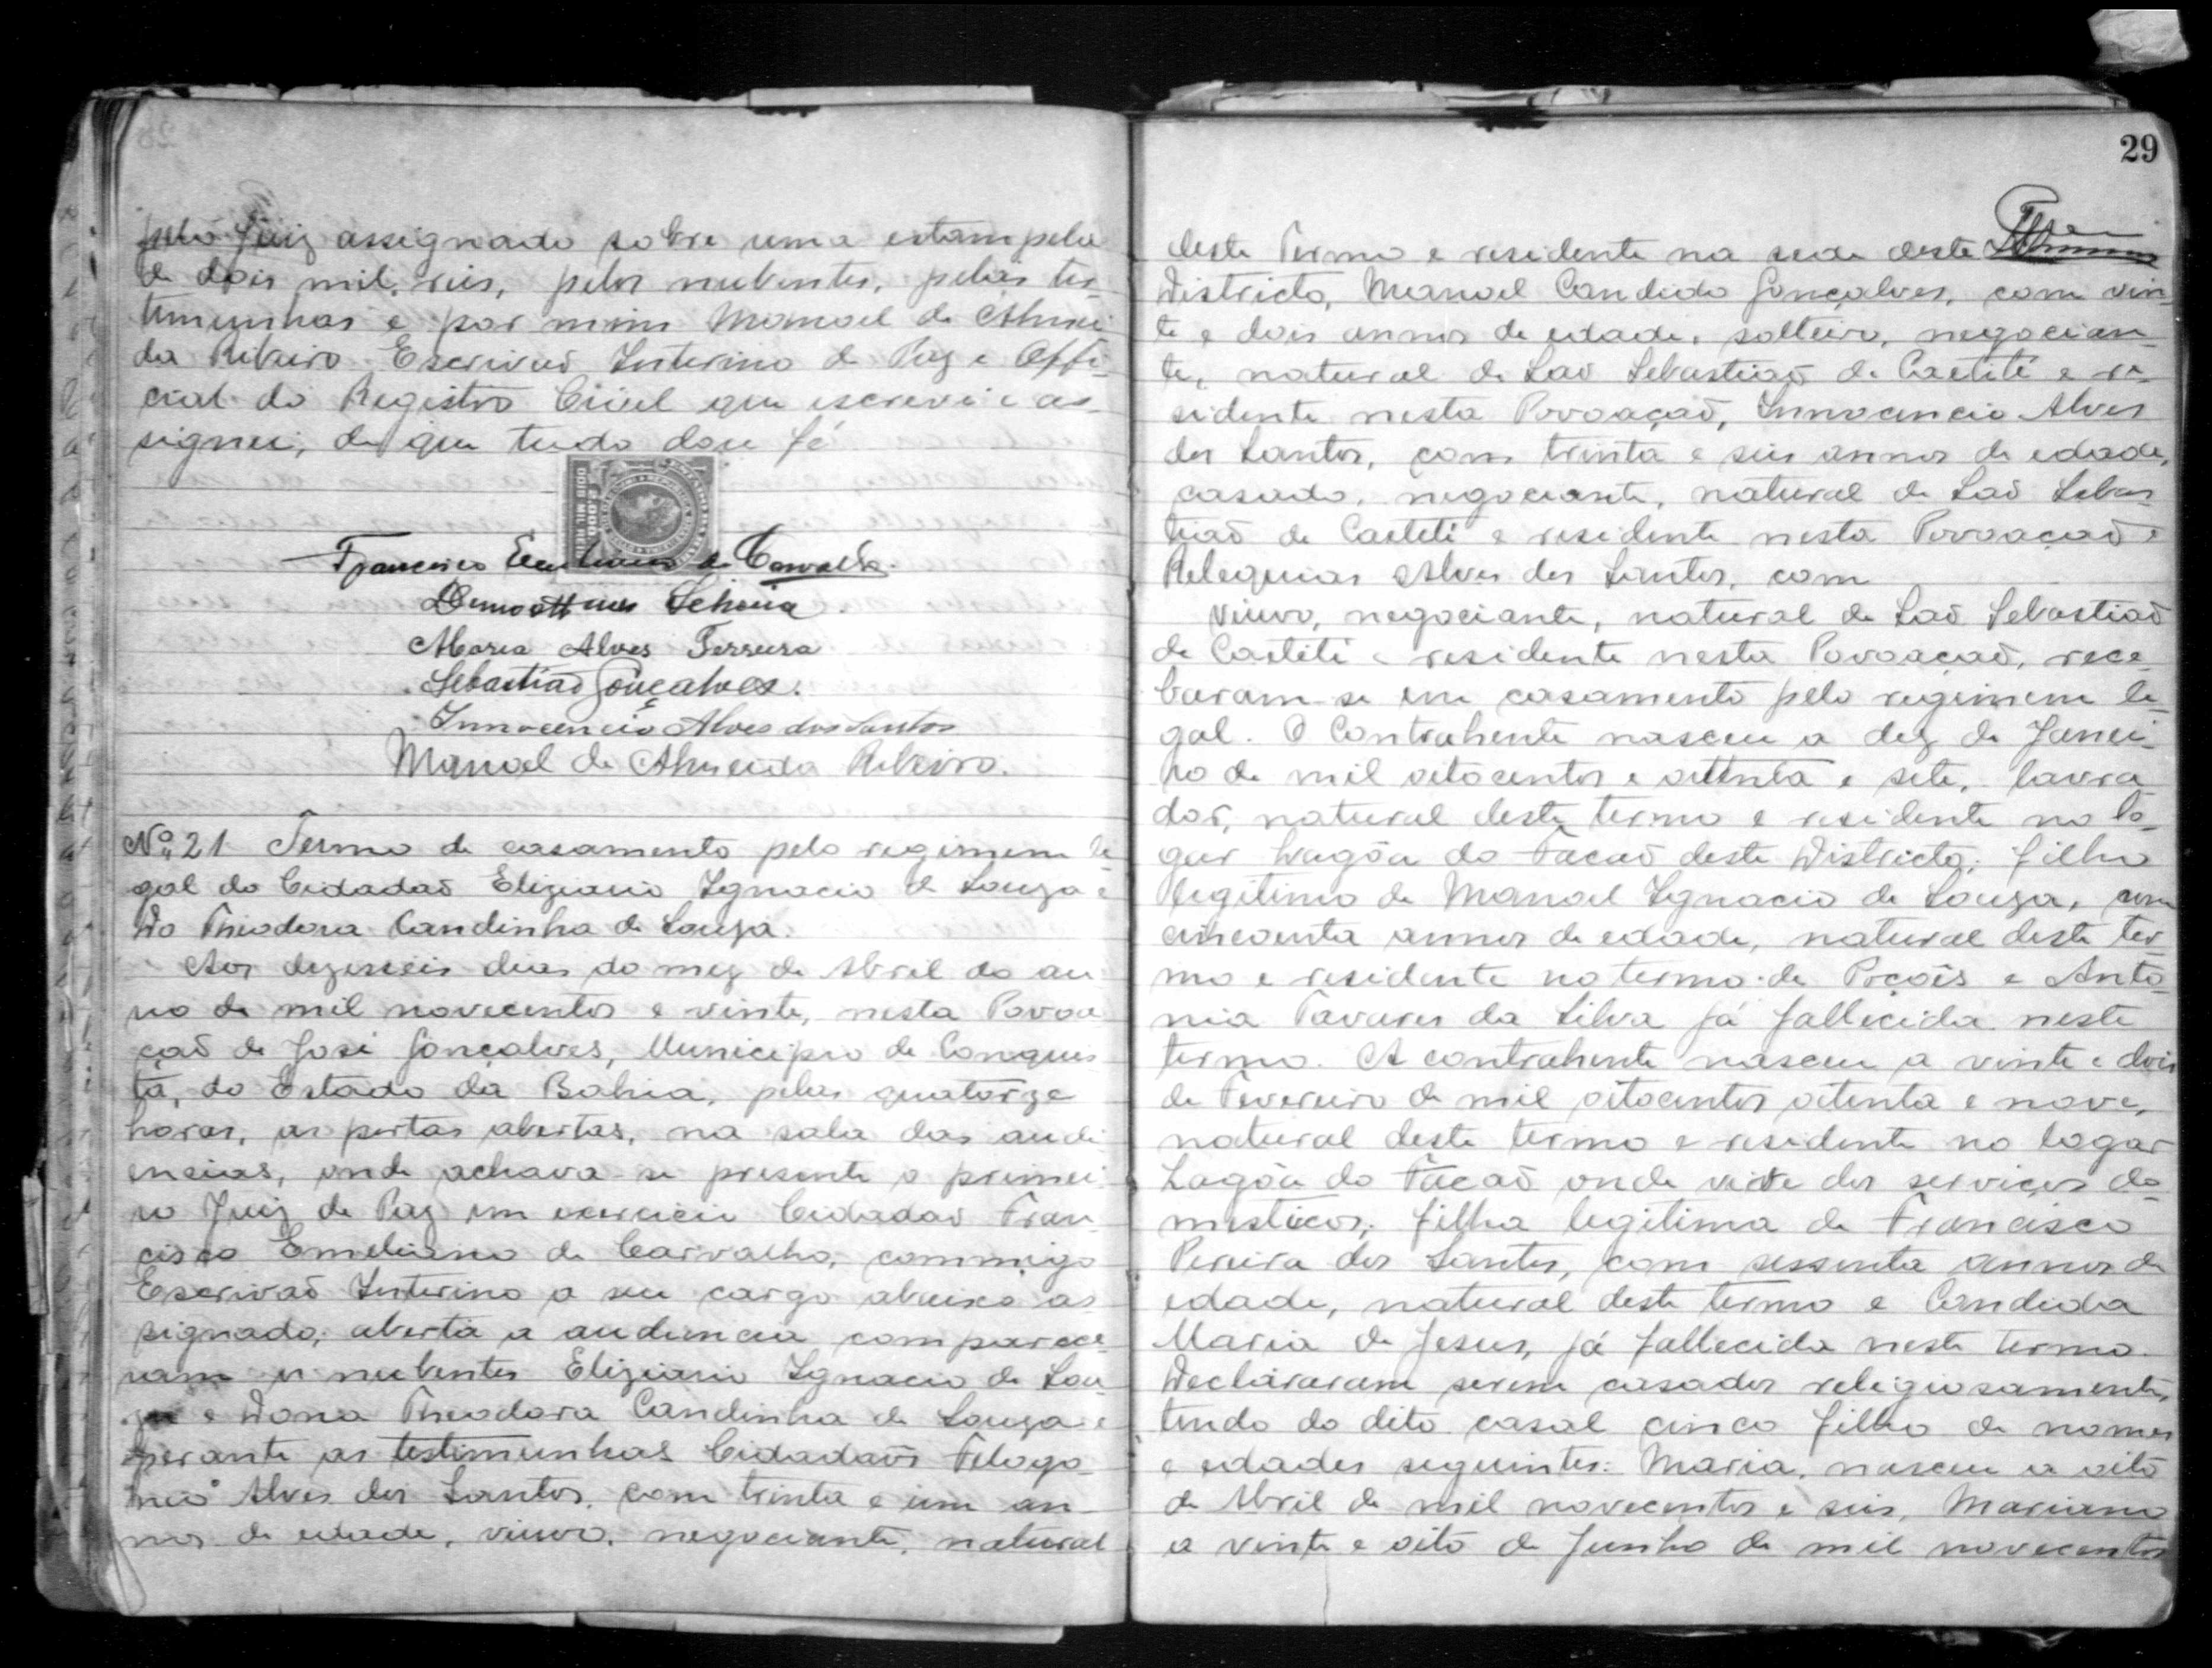 pelo Juiz assignado sobre uma estampela
de dois mil reis, pelos nubentes, pelas tes
timunhas e por mim Manoel de Almei
da Ribeiro Escrivaõ Interino de Paz e Offi
cial do Registro Civil que escrevi e as
signei, de que tudo dou fé
DOIS MIL REIS
2.000
Francisco Emeliano de Carvalho.
Maria Alves Ferreira
Sebastiaõ Gonçalves.
Innocencio Alves dos Santos
Manoel de Almeida Ribeiro.
Nº 21 Termo de casamento pelo regimem le
gal do Cidadaõ Eliziario Ignacio de Souza e
Da Theodora Candinha de Souza.
Aos dezesseis dias do mez de Abril do an
no de mil novecentos e vinte, nesta Povoa
çaõ de José Gonçalves, Municipio de Conquis
ta, do Estado da Bahia, pelas quatorze
horas, as portas abertas, na sala das audi
encias, onde achava-se presente o primei
ro Juiz de Paz em exercicio Cidadaõ Fran
cisco Emeliano de Carvalho, commigo
Escrivaõ Interino a seu cargo abaixo as
signado; aberta a audiencia comparece
ram os nubentes Eliziario Ignacio de Sou
za e Dona Theodora Candinha de Souza e
perante as testimunhas Cidadaõs Filogo
nio Alves dos Santos, com trinta e um an
nos de edade, viuvo, negociante, natural
29
deste Termo e residente na sede deste
Districto, Manoel Candido Gonçalves, com vin
te e dois annos de edade, solteiro, negocian
te, natural de Saõ Sebastiaõ de Caetité e re
sidente nesta Povoaçaõ, Innocencio Alves
dos Santos, com trinta e seis annos de edade,
casado, negociante, natural de Saõ Sebas
tiaõ de Caetité e residente nesta Povoaçaõ e
Relequias Alves dos Santos, com
viuvo, negociante, natural de Saõ Sebastiaõ
de Caetité e residente nesta Povoaçaõ, rece
baram-se em casamento pelo regimem le
gal. O Contrahente nasceu a dez de Janei
ro de mil oitocentos e oitenta e sete, lavra
dor, natural deste termo e residente no lo
gar Lagôa do Facaõ deste Districto; filho
legitimo de Manoel Ignacio de Souza, com
cincoenta annos de edade, natural deste ter
mo e residente no termo de Poçoẽs e Anto
nia Tavares da Silva já fallecida neste
termo. A contrahente nasceu a vinte e dois
de Fevereiro de mil oitocentos oitenta e nove,
natural deste termo e residente no logar
Lagôa do Facaõ onde vive dos serviços do
mesticos; filha legitima de Francisco
Pereira dos Santos, com sessenta annos de
edade, natural deste termo e Candida
Maria de Jesus, já fallecida neste termo.
Declararam serem casados religiosamente,
tendo do dito casal cinco filho de nomes
e edades seguintes: Maria, nasceu a oito
de Abril de mil novecentos e seis, Mariano
a vinte e oito de Junho de mil novecentos